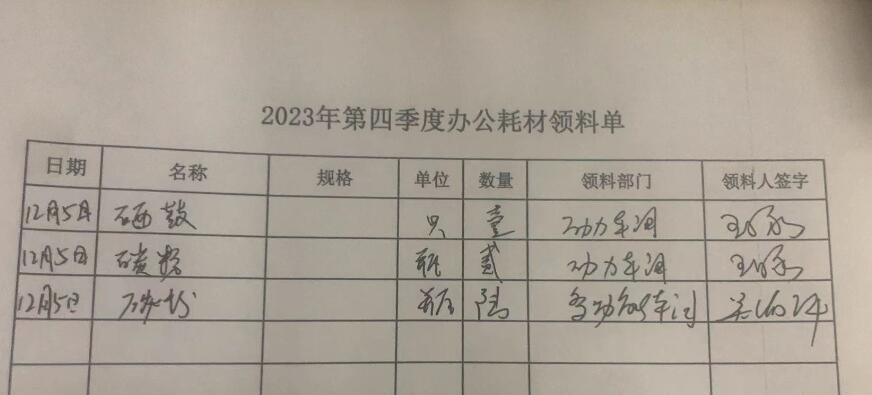 2023年第四季度办公耗材领料单
日期 名称 规格 单位 数量 领料部门 领料人签字
12月5日 硒鼓 只 壹 动力车间
12月5日 碳粉 瓶 贰 动力车间
12月5日 碳粉 瓶 陆 多功能车间